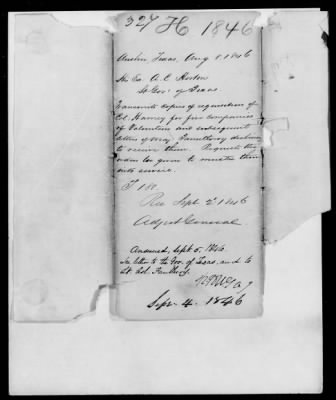 327 H 1846
Austin Texas, Aug 1. 1846
His Ex. A. C. Horton
Lt Gov. of Texas
Transmits copies of requisition of
Col. Harney for five companies
of Volunteers and subsequent
letter of May Fauntleroy declining
to receive them. Requests that
orders be given to muster them
into service.
Rec Sept 2d 1846
Adjut General
Answered, Sept. 5, 1846.
See letter to the Gov. of Texas, and to
Lt Col. Fauntleroy.
Sep. 4. 1846